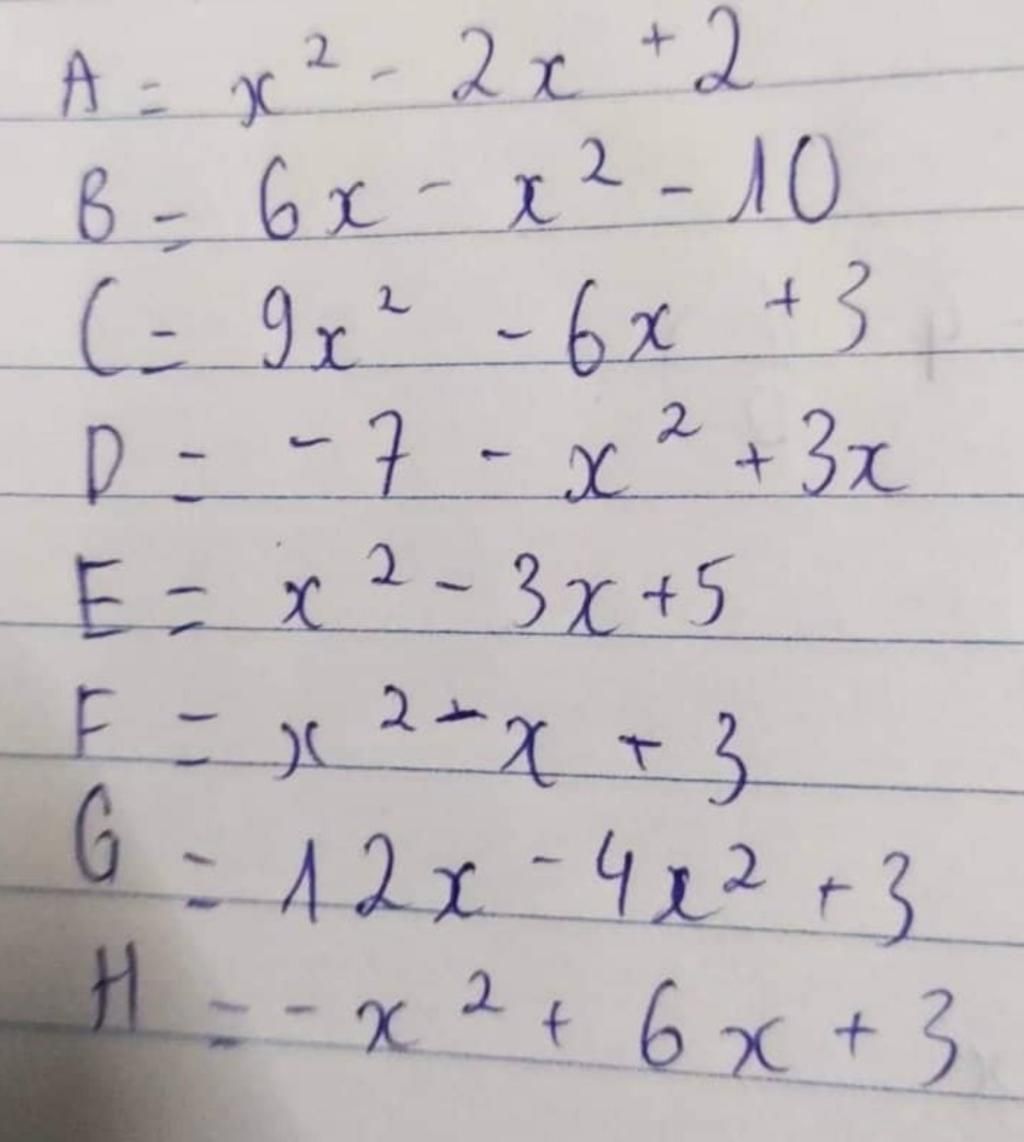 A = x² - 2x + 2
B = 6x - x² - 10
C = 9x² - 6x + 3
D = -7 - x² + 3x
E = x² - 3x + 5
F = x² - x + 3
G = 12x - 4x² + 3
H = -x² + 6x + 3